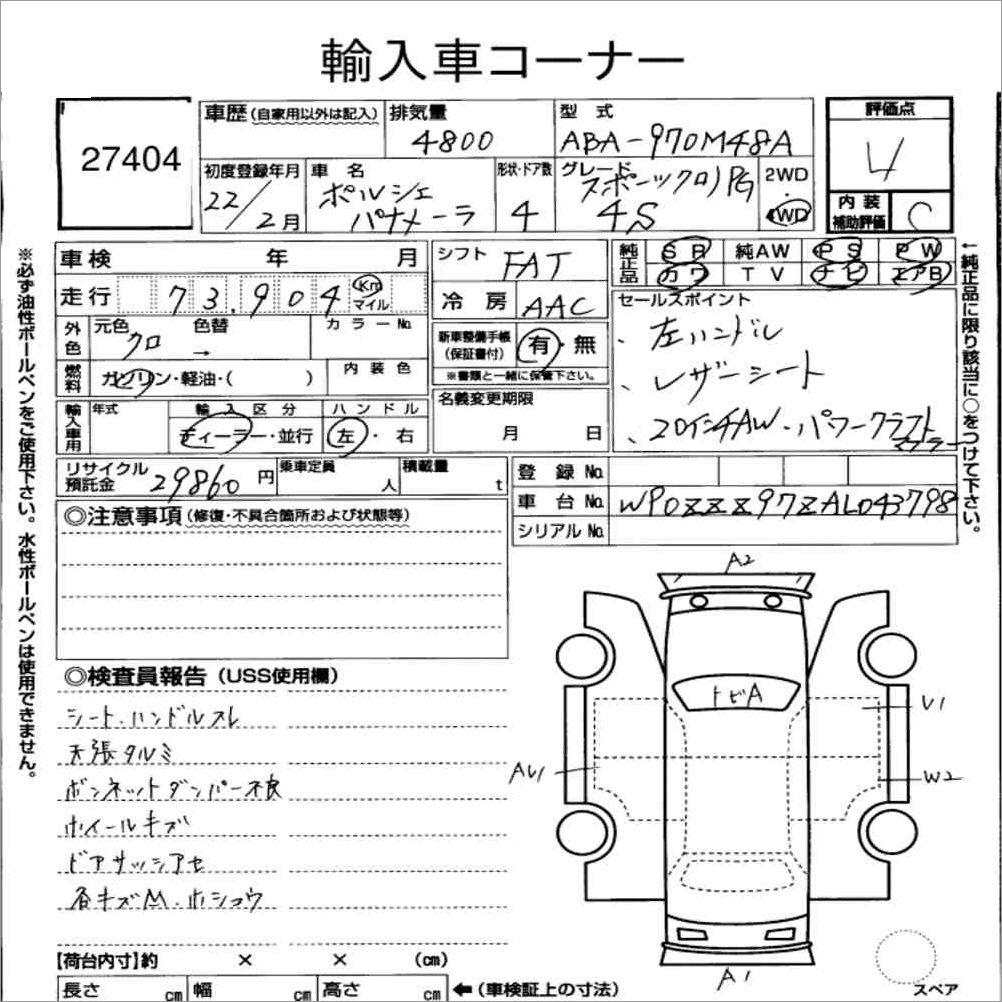 輸入車コーナー
27404
車歴 (自家用以外は記入) 排気量 型式 評価点
4800 ABA-970M48A 4
初度登録年月 車名 形状・ドア数 グレード 2WD
22/2月 ポルシェ パナメーラ 4 スポーツクロノPG 4S 4WD
内装補助評価 C
車検 年 月 シフト FAT 純正品 SR 純AW PS PW
カワ TV ナビ エアB
走行 73,904 Km マイル 冷房 AAC セールスポイント
外色 元色 クロ 色替 → カラーNo.
新車整備手帳 (保証書付) 有・無
※書類と一緒に保管下さい。
・左ハンドル
・レザーシート
・20インチAW・パワークラフト
マフラー
燃料 ガソリン・軽油・( ) 内装色
名義変更期限
月 日
輸入車用 年式 輸入区分 ハンドル
ディーラー・並行 左・右
リサイクル預託金 29860円 乗車定員 人 積載量 t
登録No.
車台No. WP0ZZZ97ZAL043798
シリアルNo.
◎注意事項 (修復・不具合箇所および状態等)
◎検査員報告 (USS使用欄)
シート・ハンドルスレ
天張タルミ
ボンネットダンパー不良
ホイールキズ
ドアサッシアセ
各キズM・ホショウ
A2
トビA
U1
AU1
W2
A1
スペア
【荷台内寸】約 × × (cm)
長さ cm 幅 cm 高さ cm ←(車検証上の寸法)
※必ず油性ボールペンをご使用下さい。水性ボールペンは使用できません。
←純正品に限り該当に○をつけて下さい。